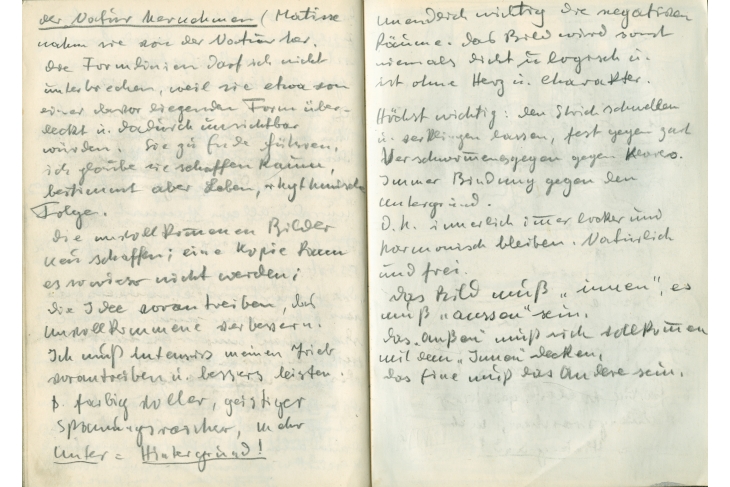 der Natur hernehmen (Matisse
nahm sie von der Natur her.
Die Formlinien darf ich nicht
unterbrechen, weil sie etwa von
einer davor liegenden Form über-
deckt u. dadurch unsichtbar
würden. Sie zu Ende führen,
ich glaube sie schaffen Raum,
bestimmt aber Leben, rhythmische
Folge.
Die unvollkommenen Bilder
neu schaffen; eine Kopie kann
es sowieso nicht werden;
die Idee vorantreiben, das
Unvollkommene verbessern.
Ich muß intensiv meinen Trieb
vorantreiben u. bessers leisten.
farbig voller, geistiger
Spannungsreicher, mehr
Unter = Hintergrund!
unendlich wichtig die negativen
Räume. Das Bild wird sonst
niemals dicht u logisch u.
ist ohne Herz u. Charakter.
Höchst wichtig: den Strich schwellen
u. verklingen lassen, fest gegen zart
Verschwommenes gegen
Immer Bindung gegen den
Untergrund.
D. h. innerlich immer locker und
harmonisch bleiben. Natürlich
und frei.
Das Bild muß „innen", es
muß „aussen" sein.
Das „Außen" muß sich vollkommen
mit dem „Innen" decken,
das Eine muß das Andere sein.